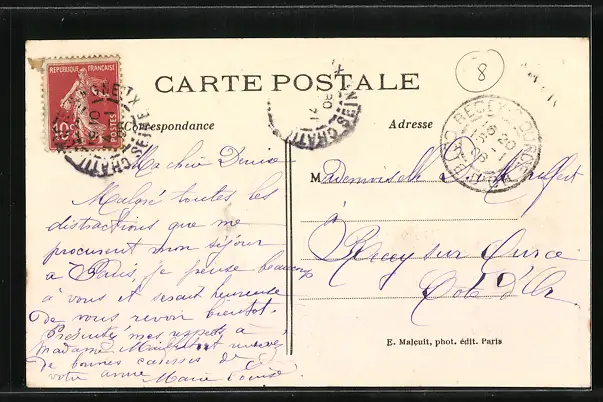 REPUBLIQUE FRANÇAISE
10c
POSTES
CARTE POSTALE
8
Correspondance
Adresse
Ma chère Denise
Malgré toutes les
distractions que me
procurent mon séjour
à Paris, je pense beaucoup
à vous et serait heureuse
de vous revoir bientôt.
Présentez mes respects à
madame et recevez
de bonnes caresses de
votre amie Marie Louise
Mademoiselle
à
Recey sur Ource
Côte d'Or
E. Malcuit, phot. édit. Paris